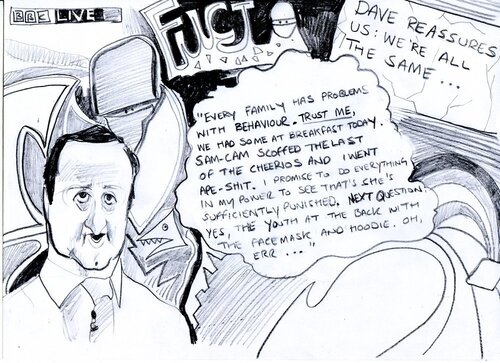 BBC LIVE
DAVE REASSURES
US: WE'RE ALL
THE SAME ...
"EVERY FAMILY HAS PROBLEMS
WITH BEHAVIOUR. TRUST ME,
WE HAD SOME AT BREAKFAST TODAY.
SAM-CAM SCOFFED THE LAST
OF THE CHEERIOS AND I WENT
APE-SHIT. I PROMISE TO DO EVERYTHING
IN MY POWER TO SEE THAT'S SHE'S
SUFFICIENTLY PUNISHED. NEXT QUESTION.
YES, THE YOUTH AT THE BACK WITH
THE FACEMASK AND HOODIE. OH,
ERR ..."